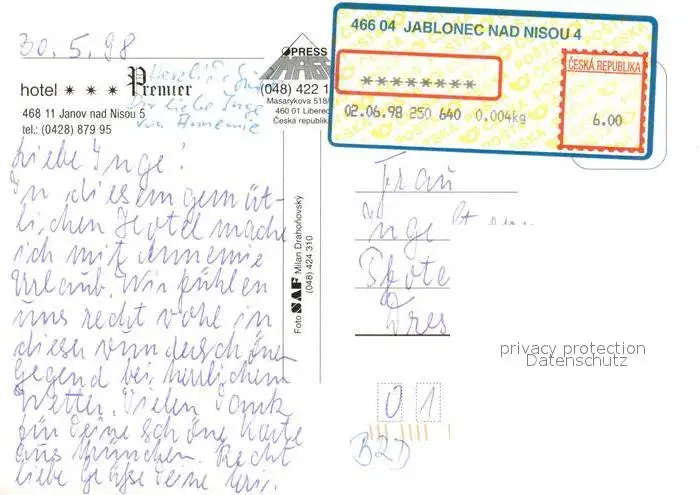 30.5.98
hotel * * * Premier
468 11 Janov nad Nisou 5
tel.: (0428) 879 95
Dir liebe Inge
von Annemie
PRESS
(048) 422 1
Masarykova 518/
460 01 Liberec
Česká republik
466 04 JABLONEC NAD NISOU 4
********
02.06.98 250 640 0,004kg
ČESKÁ REPUBLIKA
6.00
Liebe Inge!
In diesem gemüt-
lichen Hotel mache
ich mit Annemie
Urlaub. Wir fühlen
uns recht wohl in
dieser wunderschönen
Gegend bei herrlichem
Wetter. Vielen Dank
für Deine schöne Karte
aus München. Recht
liebe Grüße Deine
Foto SAF Milan Drahoňovský
(048) 424 310
Frau
Inge
Dres
privacy protection
Datenschutz
01
B2D